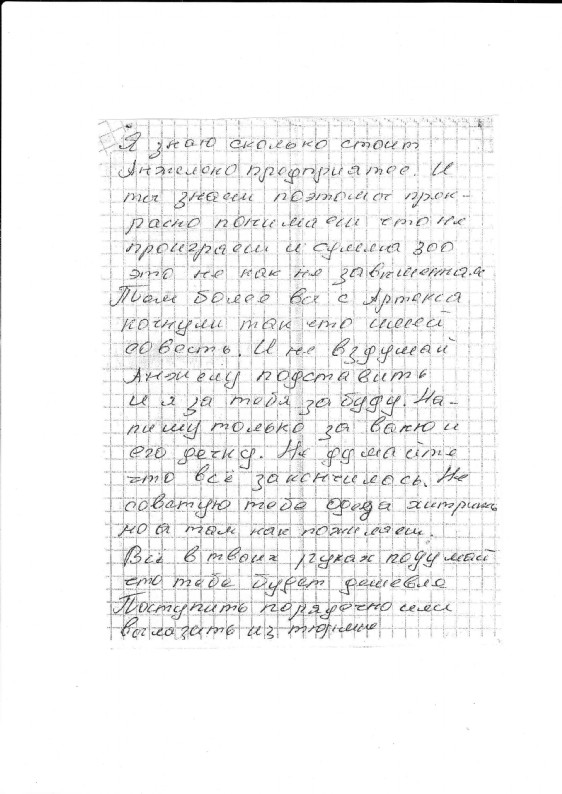 Я знаю сколько стоит
Анжелено предприятее. И
ты знаеш поэтому прек-
расно понимаеш что не
проиграеш и сумма 300
это не как не завышенная
Тем более вы с Артекса
качнули так что имей
совесть. И не вздумай
Анжелу подставить
и я за тебя забуду. На-
пишу только за ваню и
его дечку. Не думайте
что всё закончилось. Не
советую тебе хитрить
но а там как пожилаеш.
Всё в твоих руках подумай
что тебе будет дешевле
Поступить порядочно или
вылазить из тюрмы